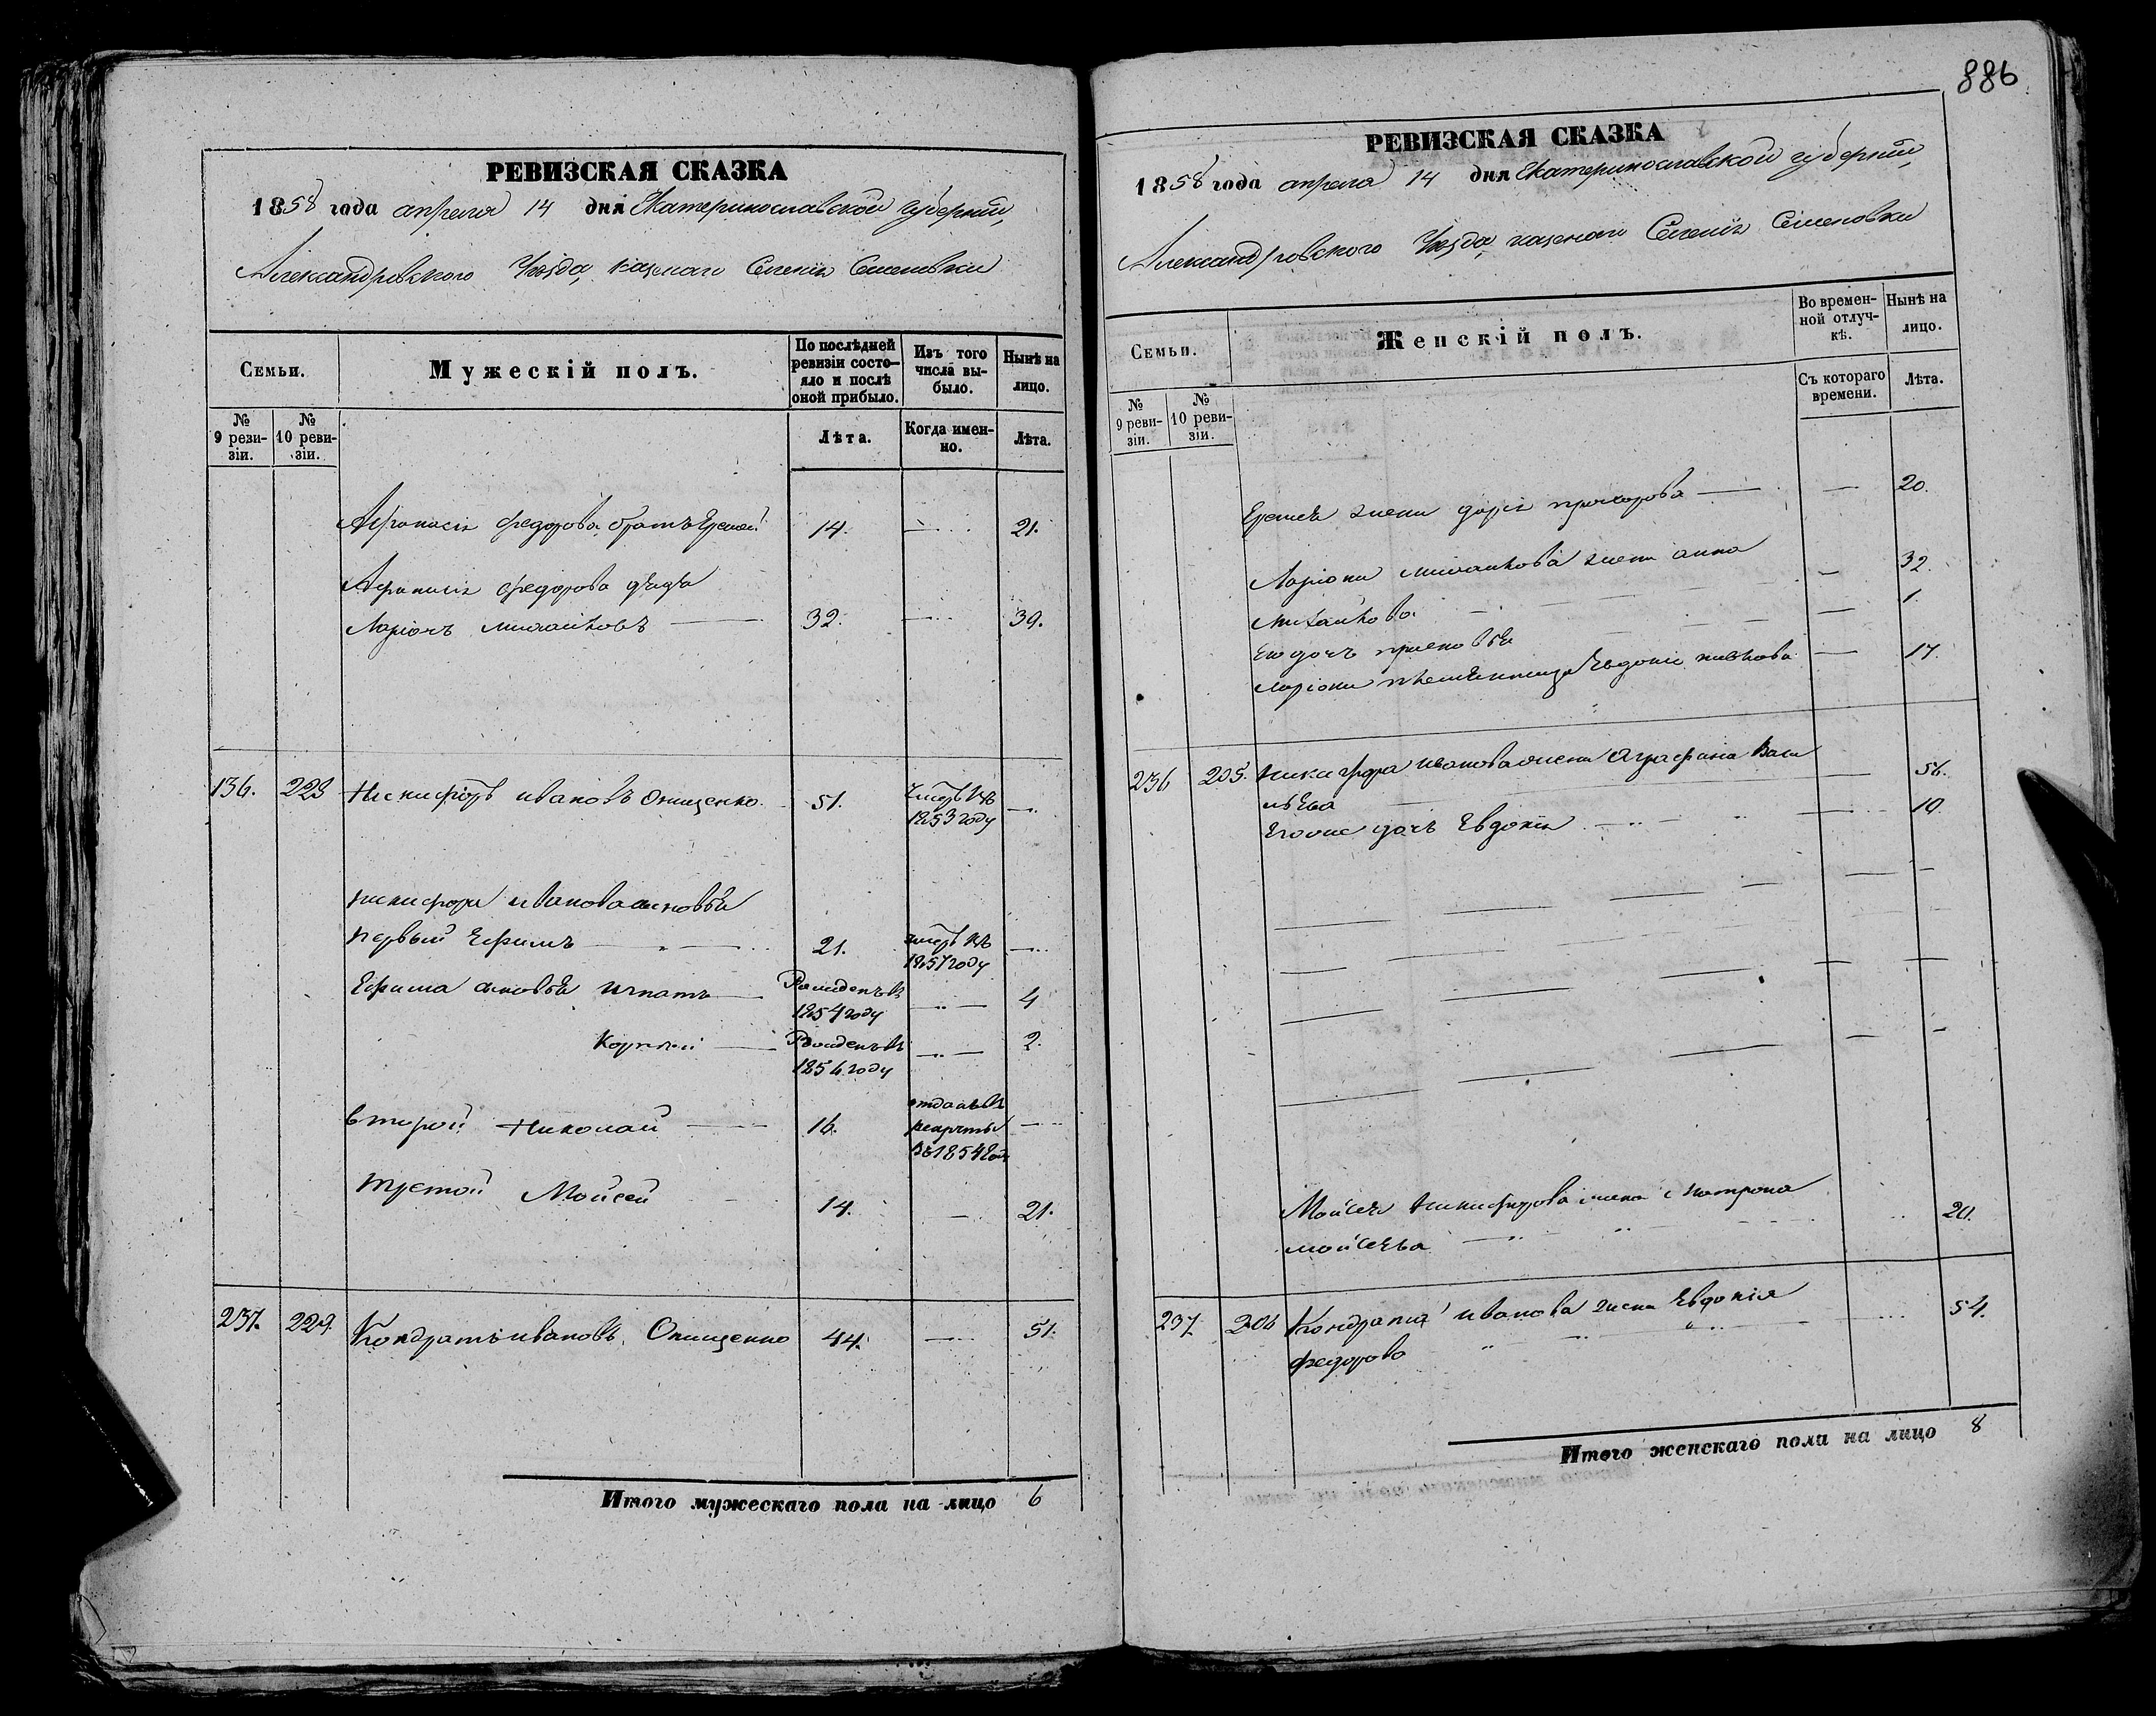 886
РЕВИЗСКАЯ СКАЗКА
1858 года апреля 14 дня Екатеринославской губернии,
Александровского Уезда, казенаго Селенія Семеновки
Семьи.
Мужескій полъ.
По послѣдней ревизіи состо-яло и послѣ оной прибыло.
Изъ того числа вы-было.
Нынѣ на лицо.
№ 9 реви-зіи.
№ 10 реви-зіи.
Лѣта.
Когда имен-но.
Лѣта.
Афанасія Федорова братъ Еремей 14. — 21.
Афанасія Федорова дядя
Ларіонъ Михайловъ — 32. — 39.
136. 228 Никифоръ Ивановъ Онищенко 51. Умеръ въ 1853 году —
Никифора Иванова сыновья
первый Ефимъ — 21. умеръ въ 1857 году —
Ефима сыновья Игнатъ — Рожденъ въ 1854 году — 4
Корней — Рожденъ въ 1856 году — 2.
второй Николай — 16. отданъ въ рекруты въ 1854 году —
третой Мойсей 14. — 21.
237. 229. Кондратъ Ивановъ Онищенко 44. — 51.
Итого мужескаго пола на лицо 6
РЕВИЗСКАЯ СКАЗКА
1858 года апреля 14 дня Екатеринославской губерніи,
Александровского Уезда, казенаго Селенія Семеновки
Семьи.
Женскій полъ.
Во времен-ной отлуч-кѣ.
Нынѣ на лицо.
№ 9 реви-зіи.
№ 10 реви-зіи.
Съ котораго времени.
Лѣта.
Еремея жена Дарія Прохорова — — 20.
Ларіона Михайлова жена Анна
Михайлова — 32.
Его дочь — 1.
Ларіона племенница Евдокія — 17.
236 205. Никифора Иванова жена Аграфина Васи
льева — 56.
Его же дочь Евдокія — 10.
Мойсея Никифорова жена Матрона
Мойсеева — 20.
237. 206 Кондратія Иванова жена Евдокія
Федорова 54.
Итого женскаго пола на лицо 8